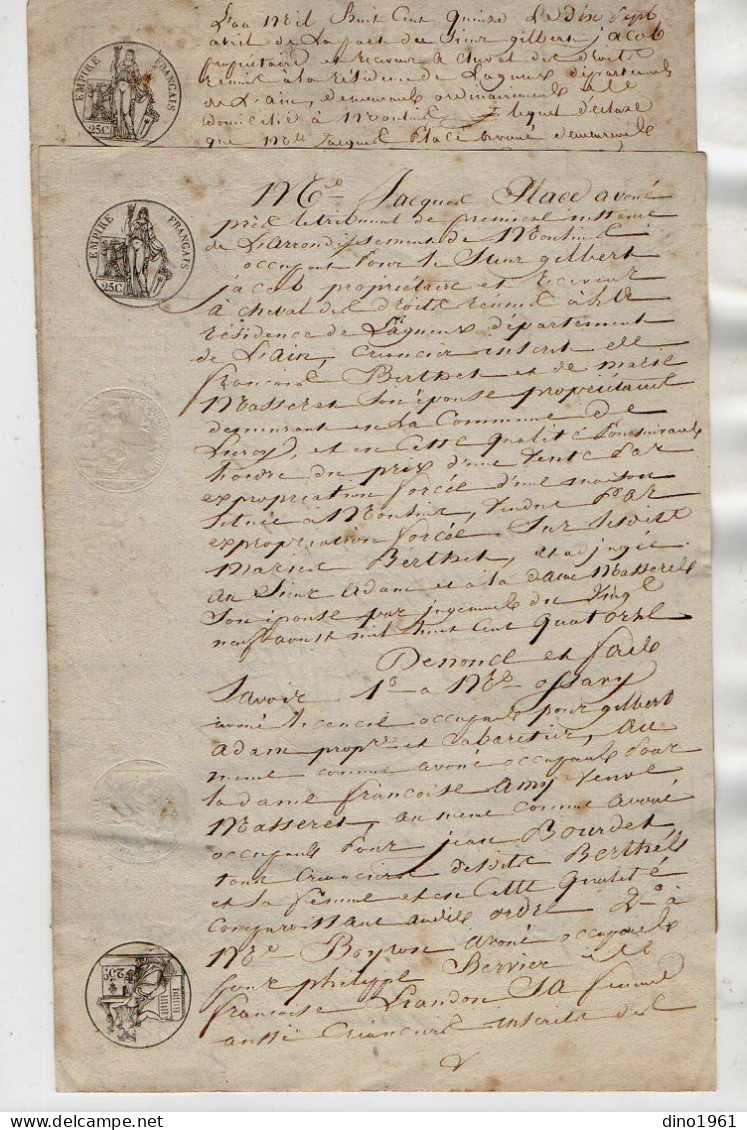 L'an Mil huit Cent Quinze Le Dix Sept
avril de La part du Sieur gilbert jacob
propriétaire et receveur à cheval des droits
réunis à la résidence de Lagneux département
de L'ain, demeurant ordinairement
domicilié à Montluel
que Me Jacques Place avoué demeurant
EMPIRE FRANÇAIS
25C.
Me Jacques Place avoué
près le tribunal de première instance
de L'arrondissement de
occupant pour le Sieur gilbert
jacob propriétaire et receveur
à cheval des droits réunis à la
résidence de Lagneux département
de L'ain, créancier inscrit de
françois Berthet et de marie
Masseret son épouse propriétaires
demeurant en La Commune de
et en cette qualité poursuivant
l'ordre du prix d'une vente par
expropriation forcée d'une maison
située à vendue par
expropriation forcée Sur lesdits
mariés Berthet, et adjugée
au Sieur adam et à la dame Masseret
Son épouse par jugement du Vingt
neuf aoust mil huit cent quatorze
EMPIRE FRANÇAIS
25C.
Denonce et
Savoir 1o a Me
avoué occupant pour gilbert
adam propre et Cabaretier, au
meme comme avoué occupant pour
la dame françoise Amy veuve
Masseret, au meme comme avoué
occupant pour jean Bourdet,
tous créanciers desdits Berthet
et Sa femme et en cette qualité
comparoissant audit ordre 2o à
Me Boyron avoué occupant
pour philippe Bervier et
françoise Sa femme
aussi créanciers inscrits des
25C.
dino1961